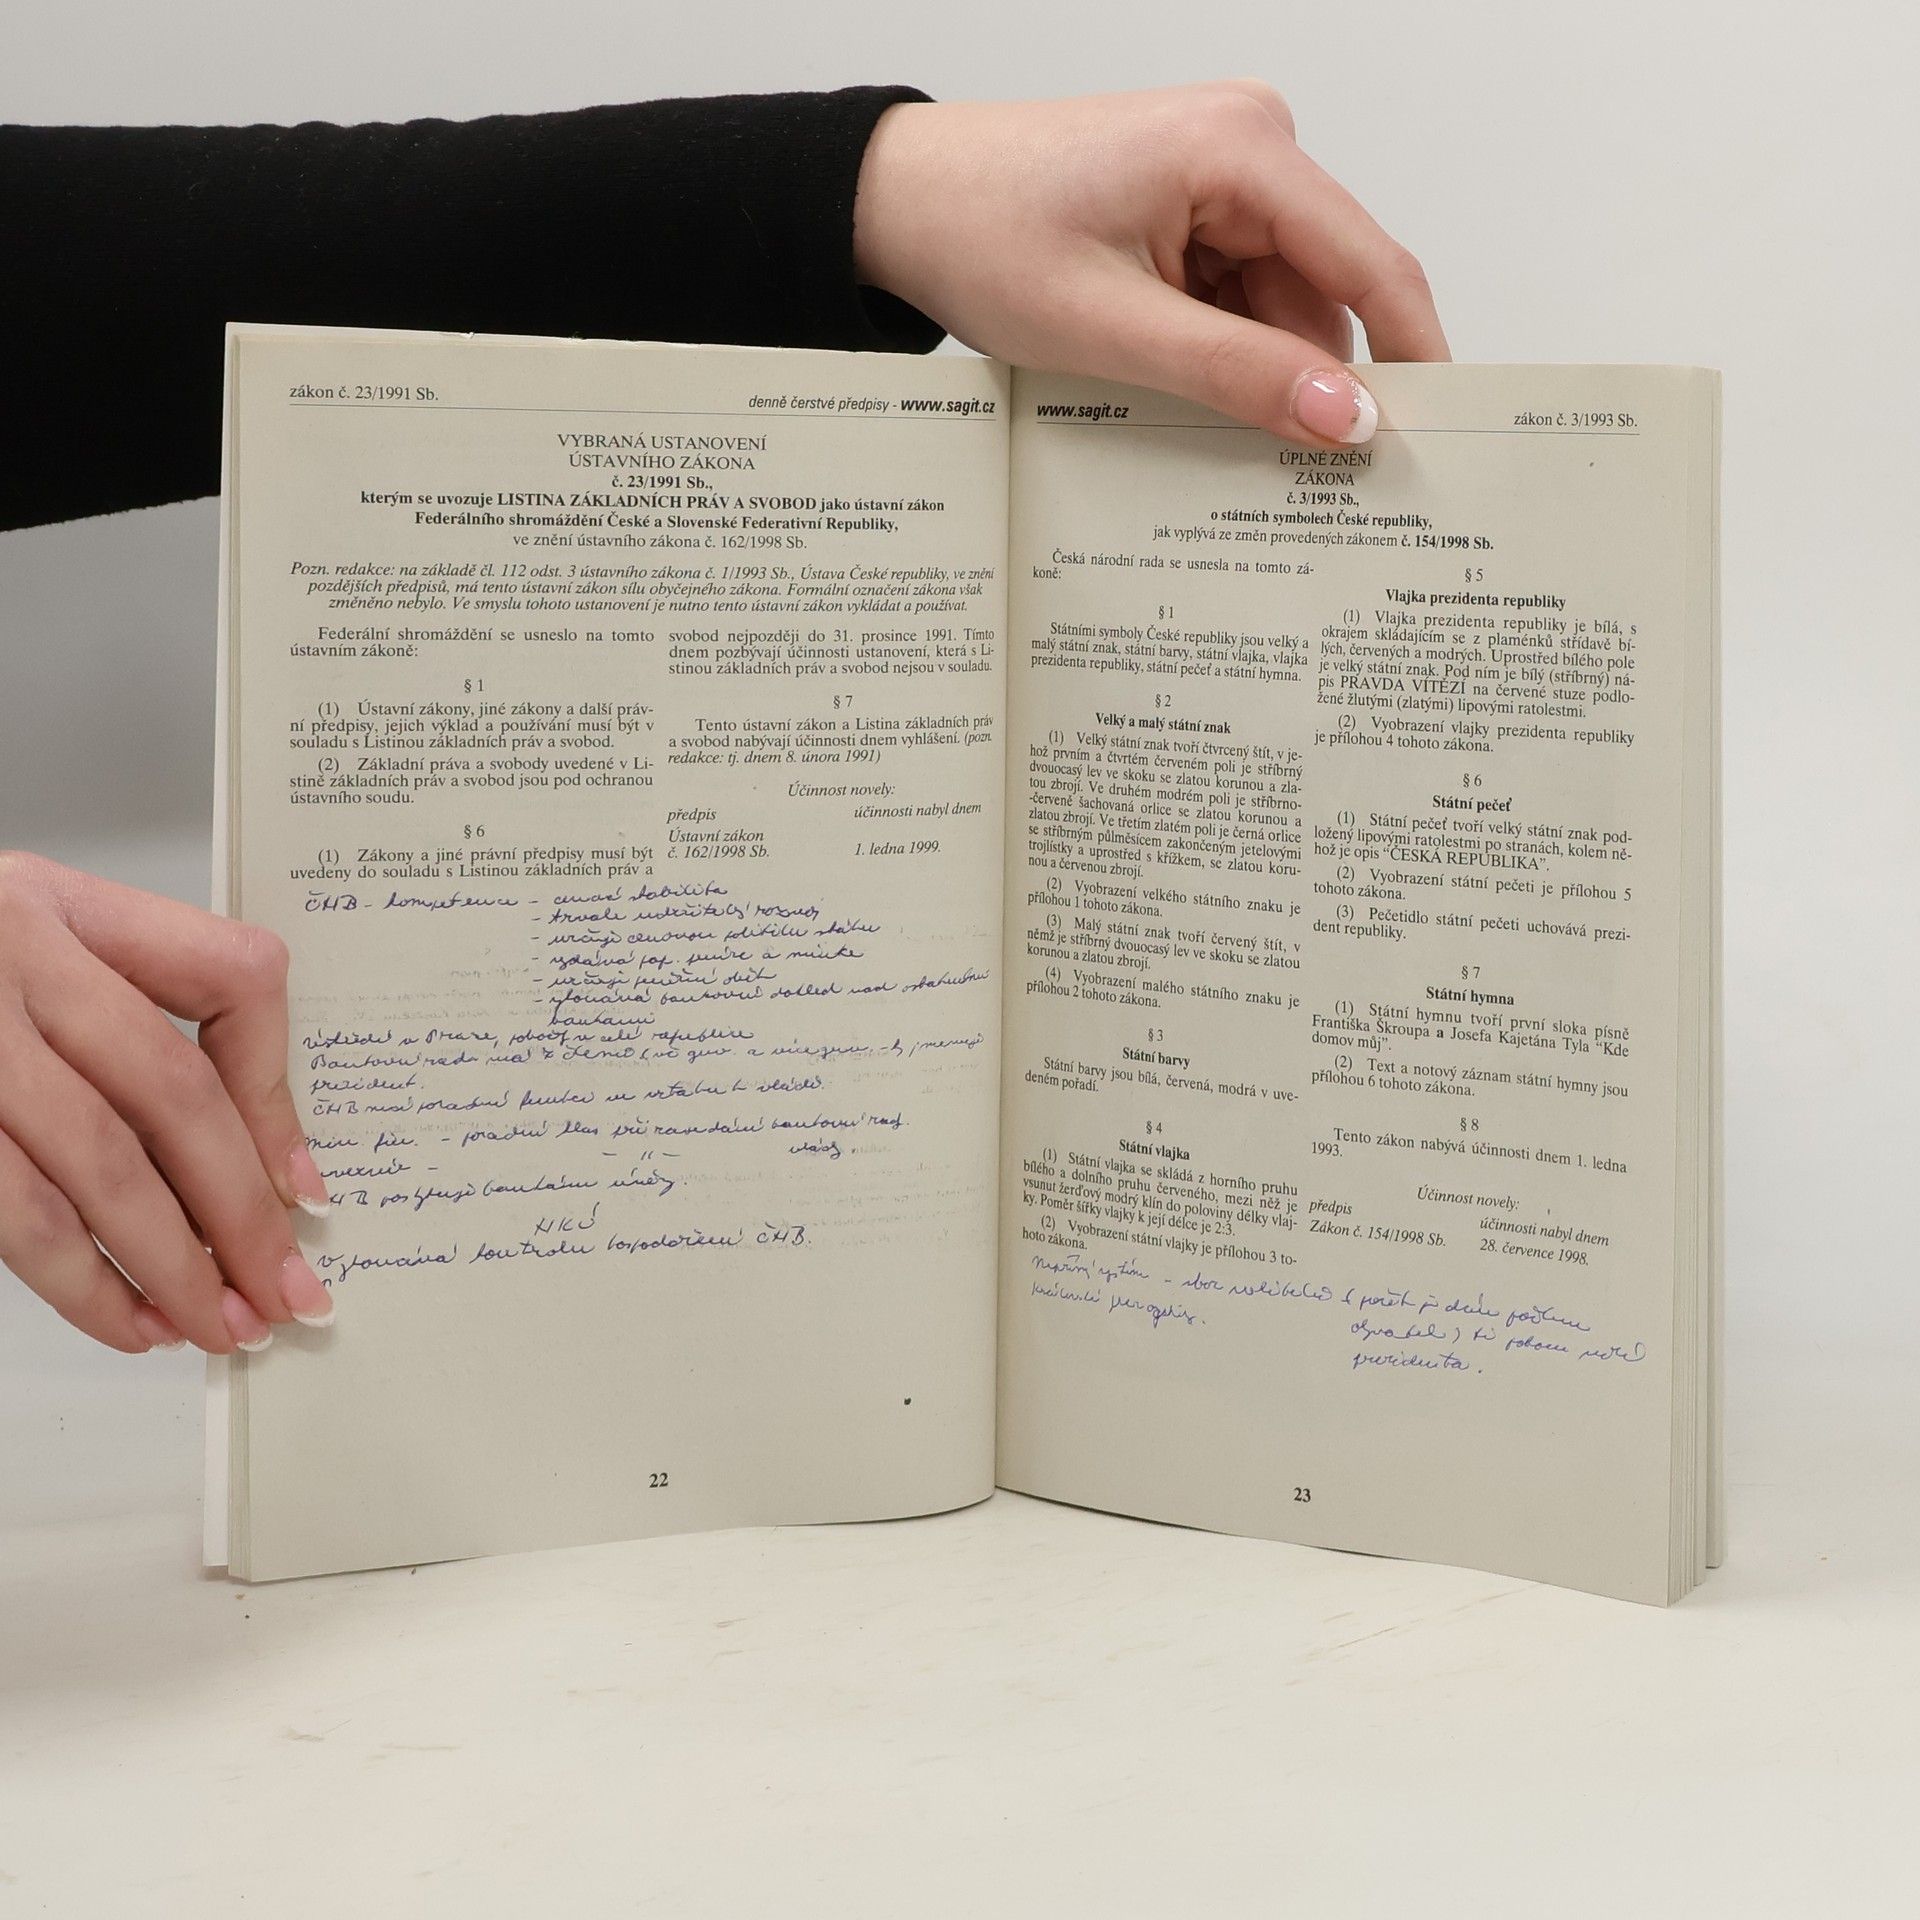 zákon č. 23/1991 Sb.
denně čerstvé předpisy - www.sagit.cz
VYBRANÁ USTANOVENÍ
ÚSTAVNÍHO ZÁKONA
č. 23/1991 Sb.,
kterým se uvozuje LISTINA ZÁKLADNÍCH PRÁV A SVOBOD jako ústavní zákon
Federálního shromáždění České a Slovenské Federativní Republiky,
ve znění ústavního zákona č. 162/1998 Sb.
Pozn. redakce: na základě čl. 112 odst. 3 ústavního zákona č. 1/1993 Sb., Ústava České republiky, ve znění
pozdějších předpisů, má tento ústavní zákon sílu obyčejného zákona. Formální označení zákona však
změněno nebylo. Ve smyslu tohoto ustanovení je nutno tento ústavní zákon vykládat a používat.
Federální shromáždění se usneslo na tomto
ústavním zákoně:
§ 1
(1) Ústavní zákony, jiné zákony a další práv-
ní předpisy, jejich výklad a používání musí být v
souladu s Listinou základních práv a svobod.
(2) Základní práva a svobody uvedené v Li-
stině základních práv a svobod jsou pod ochranou
ústavního soudu.
§ 6
(1) Zákony a jiné právní předpisy musí být
uvedeny do souladu s Listinou základních práv a
svobod nejpozději do 31. prosince 1991. Tímto
dnem pozbývají účinnosti ustanovení, která s Li-
stinou základních práv a svobod nejsou v souladu.
§ 7
Tento ústavní zákon a Listina základních práv
a svobod nabývají účinnosti dnem vyhlášení. (pozn.
redakce: tj. dnem 8. února 1991)
Účinnost novely:
předpis účinnosti nabyl dnem
Ústavní zákon
č. 162/1998 Sb. 1. ledna 1999.
ČNB - kompetence - cenová stabilita
- trvale udržitelný rozvoj
- určuje cenovou politiku státu
- vydává pap. peníze a mince
- určuje peněžní oběh
- vykonává bankovní dohled nad ostatními
bankami
ústředí v Praze, pobočky v celé republice
Bankovní rada má 7 členů
prezident.
ČNB
Min. fin. - poradní hlas při zasedání bankovní rady.
- " - vlády.
ČNB poskytuje bankám úvěry.
NKÚ
Vykonává kontrolu hospodaření ČNB.
22
www.sagit.cz
zákon č. 3/1993 Sb.
ÚPLNÉ ZNĚNÍ
ZÁKONA
č. 3/1993 Sb.,
o státních symbolech České republiky,
jak vyplývá ze změn provedených zákonem č. 154/1998 Sb.
Česká národní rada se usnesla na tomto zá-
koně:
§ 1
Státními symboly České republiky jsou velký a
malý státní znak, státní barvy, státní vlajka, vlajka
prezidenta republiky, státní pečeť a státní hymna.
§ 2
Velký a malý státní znak
(1) Velký státní znak tvoří čtvrcený štít, v je-
hož prvním a čtvrtém červeném poli je stříbrný
dvouocasý lev ve skoku se zlatou korunou a zla-
tou zbrojí. Ve druhém modrém poli je stříbrno-
-červeně šachovaná orlice se zlatou korunou a
zlatou zbrojí. Ve třetím zlatém poli je černá orlice
se stříbrným půlměsícem zakončeným jetelovými
trojlístky a uprostřed s křížkem, se zlatou koru-
nou a červenou zbrojí.
(2) Vyobrazení velkého státního znaku je
přílohou 1 tohoto zákona.
(3) Malý státní znak tvoří červený štít, v
němž je stříbrný dvouocasý lev ve skoku se zlatou
korunou a zlatou zbrojí.
(4) Vyobrazení malého státního znaku je
přílohou 2 tohoto zákona.
§ 3
Státní barvy
Státní barvy jsou bílá, červená, modrá v uve-
deném pořadí.
§ 4
Státní vlajka
(1) Státní vlajka se skládá z horního pruhu
bílého a dolního pruhu červeného, mezi něž je
vsunut žerďový modrý klín do poloviny délky vlaj-
ky. Poměr šířky vlajky k její délce je 2:3.
(2) Vyobrazení státní vlajky je přílohou 3 to-
hoto zákona.
§ 5
Vlajka prezidenta republiky
(1) Vlajka prezidenta republiky je bílá, s
okrajem skládajícím se z plaménků střídavě bí-
lých, červených a modrých. Uprostřed bílého pole
je velký státní znak. Pod ním je bílý (stříbrný) ná-
pis PRAVDA VÍTĚZÍ na červené stuze podlo-
žené žlutými (zlatými) lipovými ratolestmi.
(2) Vyobrazení vlajky prezidenta republiky
je přílohou 4 tohoto zákona.
§ 6
Státní pečeť
(1) Státní pečeť tvoří velký státní znak pod-
ložený lipovými ratolestmi po stranách, kolem ně-
hož je opis “ČESKÁ REPUBLIKA”.
(2) Vyobrazení státní pečeti je přílohou 5
tohoto zákona.
(3) Pečetidlo státní pečeti uchovává prezi-
dent republiky.
§ 7
Státní hymna
(1) Státní hymnu tvoří první sloka písně
Františka Škroupa a Josefa Kajetána Tyla “Kde
domov můj”.
(2) Text a notový záznam státní hymny jsou
přílohou 6 tohoto zákona.
§ 8
Tento zákon nabývá účinnosti dnem 1. ledna
1993.
Účinnost novely:
předpis účinnosti nabyl dnem
Zákon č. 154/1998 Sb. 28. července 1998.
Nepřímý systém - sbor volitelů
prezidenta.
23